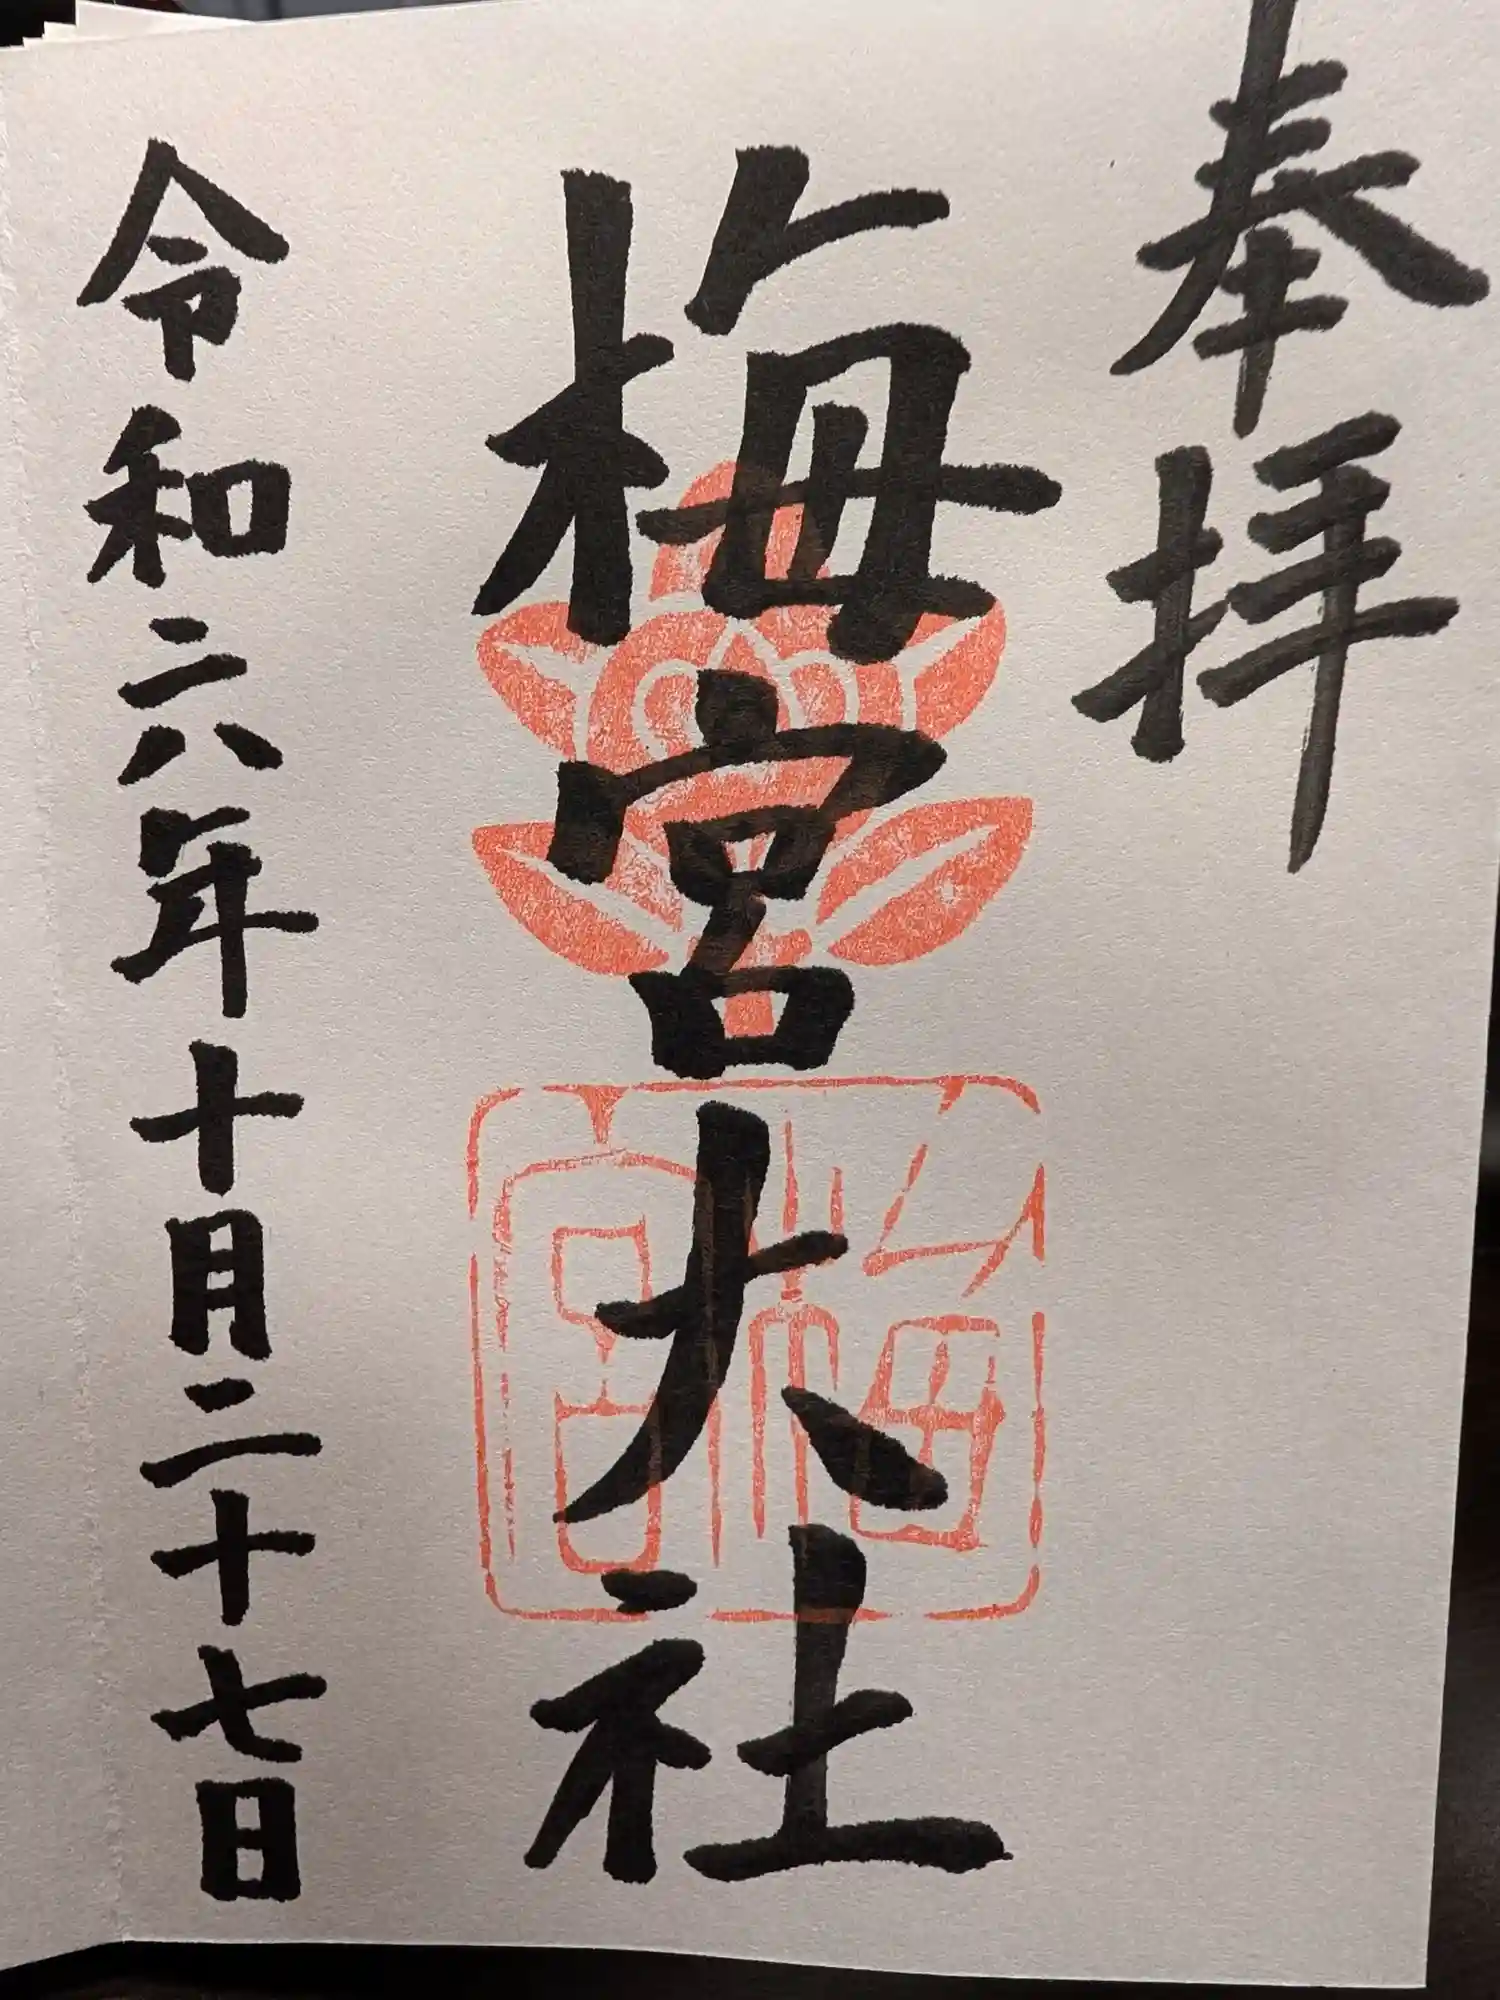 奉拝
梅宮大社
令和六年十月二十七日